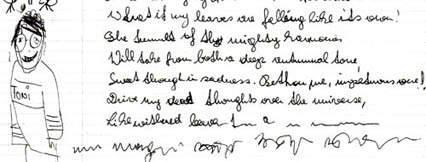 What if my leaves are falling like its own!
The tumult of thy mighty harmonies
Will take from both a deep autumnal tone,
Sweet though in sadness. Be thou me, impetuous one!
TONI
Drive my dead thoughts over the universe,
Like withered leaves